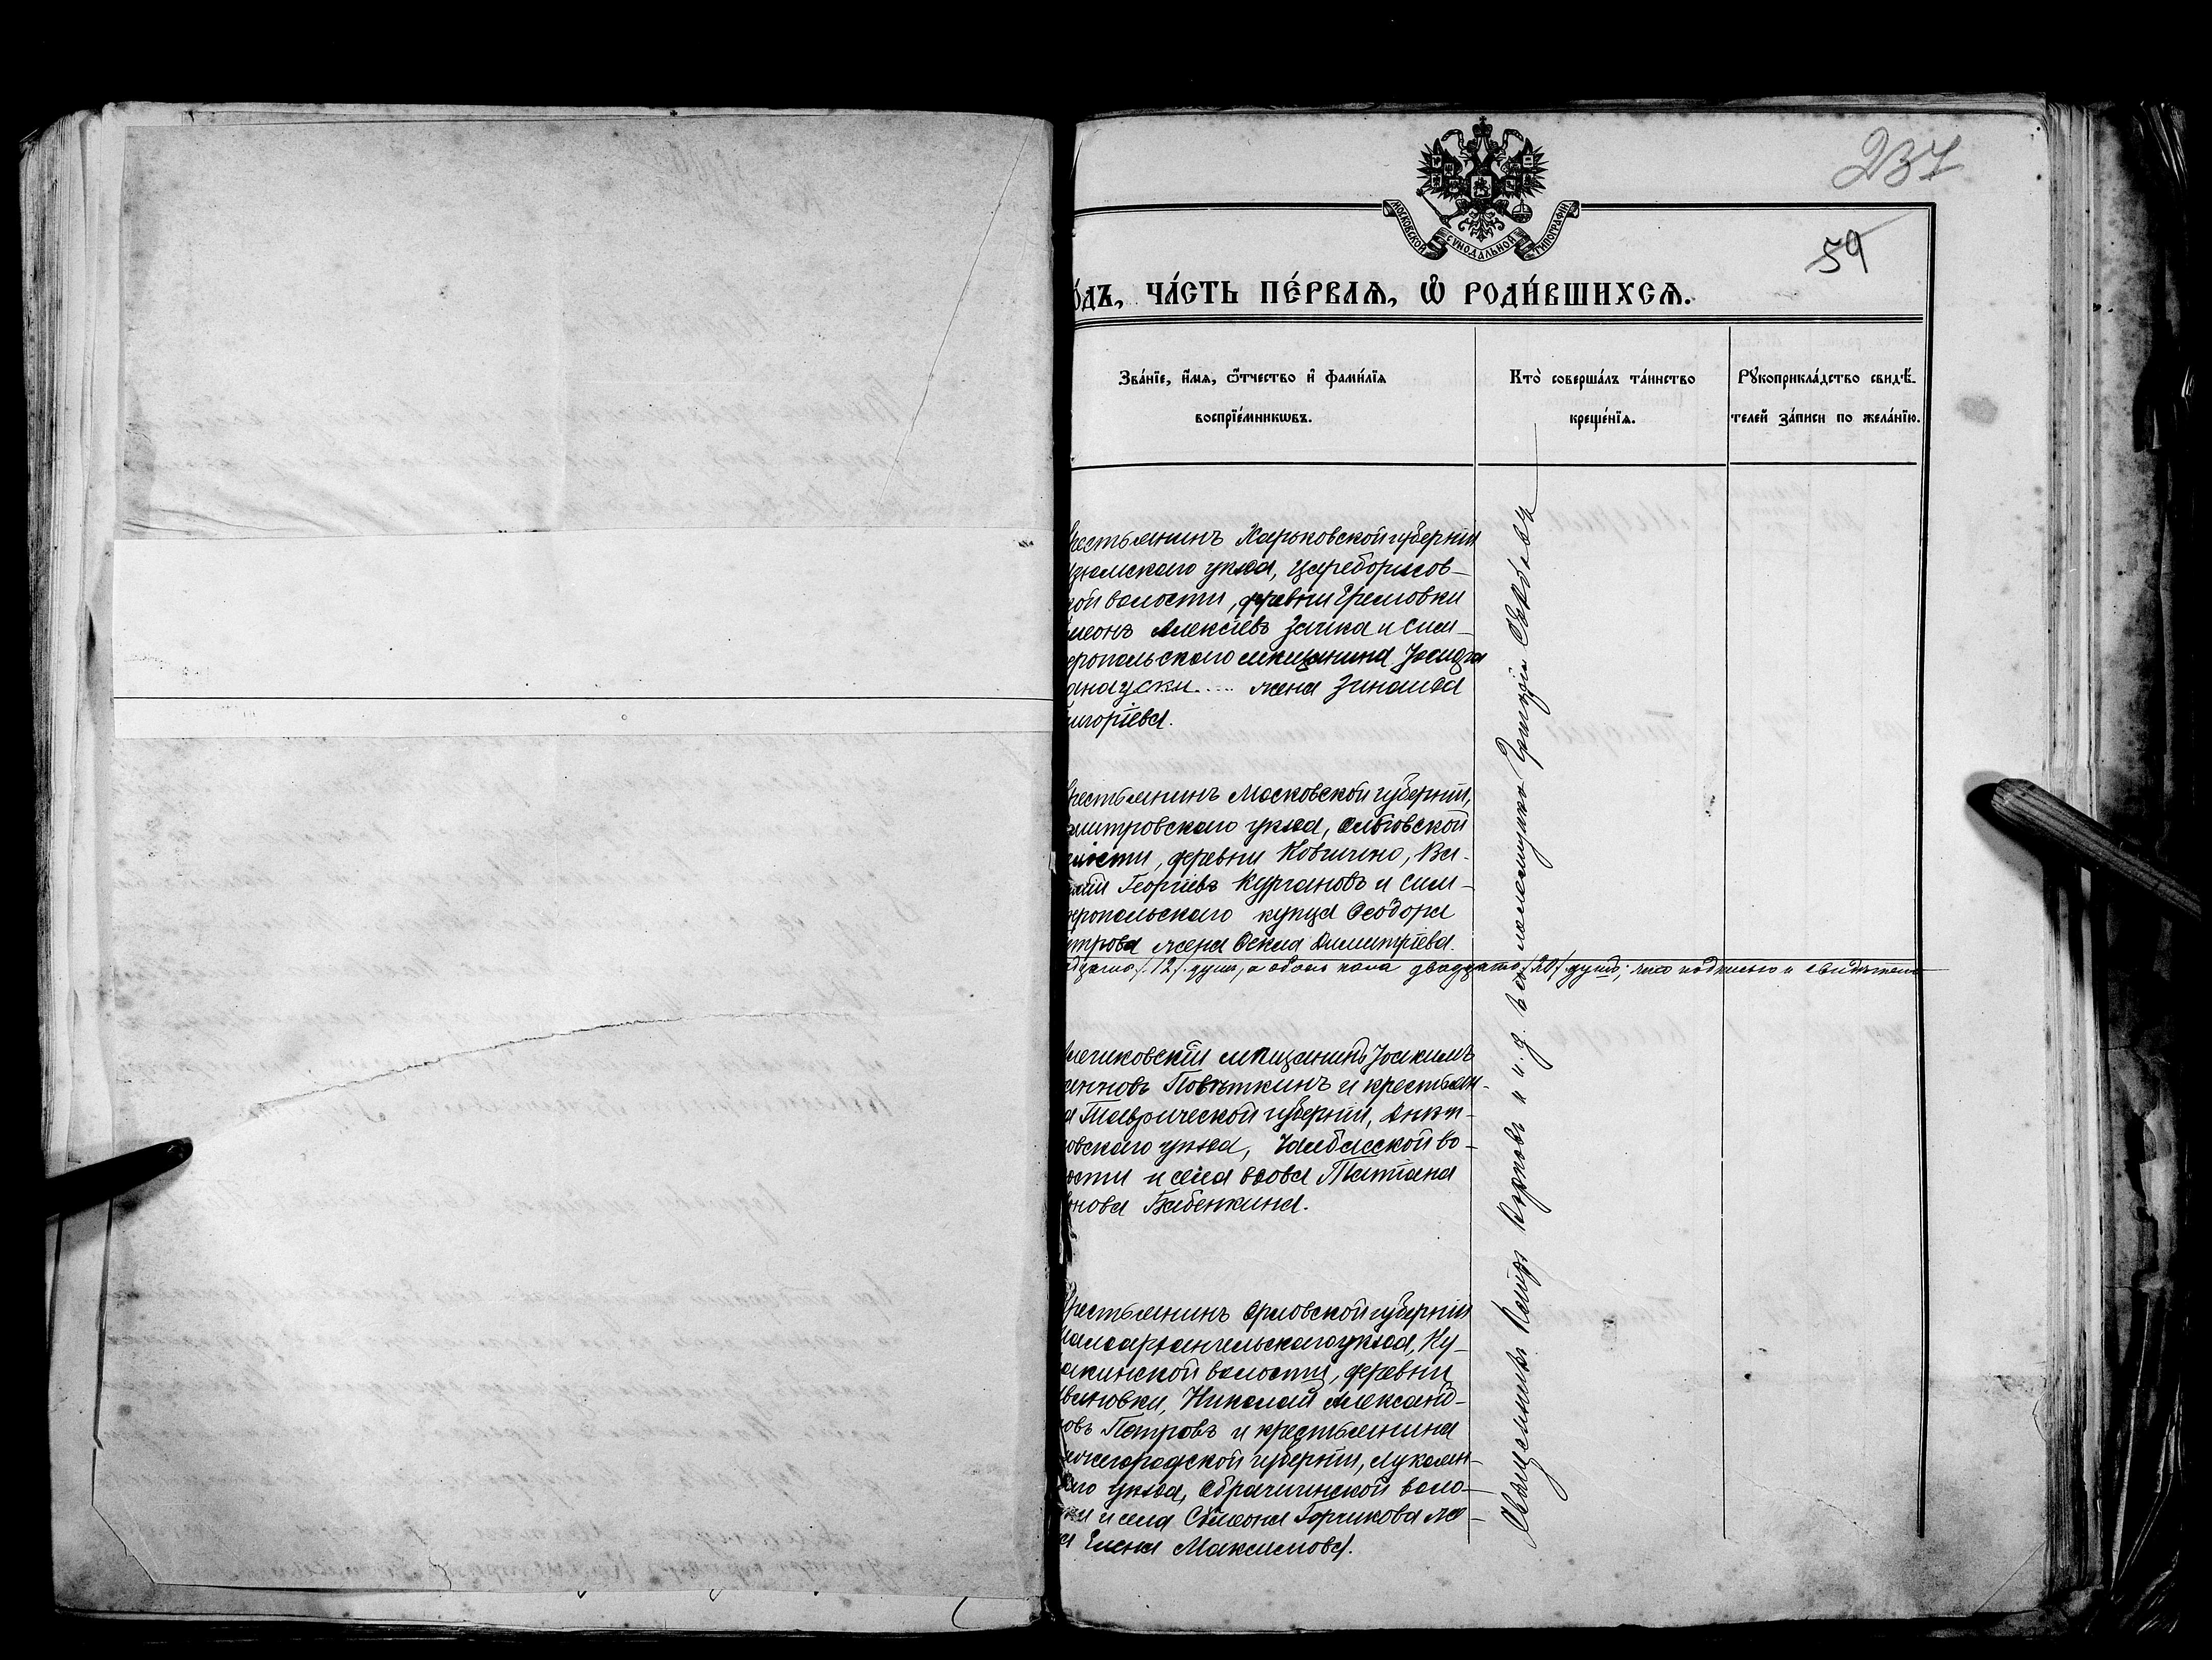 237
59
МОСКОВСКОЙ СѴНОДАЛЬНОЙ ТИПОГРАФІИ
о́дъ, ча́сть пе́рваѧ, ѽ роди́вшихсѧ.
Зва́нїе, и҆́мѧ, ѻ҆́тчество и҆ фами́лїѧ
воспрїе́мникѡвъ.
Кто̀ соверша́лъ та́инство
креще́нїѧ.
Рꙋкоприкла́дство свидѣ́-
телей за́писи по жела́нїю.
рестьянинъ Харьковской губерніи
зюмскаго уѣзда, Цареборисов-
кой волости, деревни Еремовки
меонъ Алексіевъ Заика и сим-
еропольскаго мѣщанина
жена Зинаида
ригоріева.
рестьянинъ Московской губерніи,
митровскаго уѣзда, Ольговской
олости, деревни Ва-
илій Георгіевъ Кургановъ и сим-
еропольскаго купца Ѳеодора
етрова жена Ѳекла Димитріева.
адцать /12/ душъ, а обоего пола двадцать /20/ душъ; что подписью и свидѣтель-
мѣщанинъ Іоакимъ
Повѣткинъ и крестьян-
а Таврической губерніи, Днѣп-
овскаго уѣзда, Чалбасской во-
ости и села вдова Татіана
нова Бабенкина.
рестьянинъ Орловской губерніи
алоархангельскаго уѣзда, Ку-
акинской волости, деревни
Николай Александ-
овъ Петровъ и крестьянина
ижегородской губерніи, Лукоян-
каго уѣзда, воло-
сти и села Сѵмеона Горчикова же-
а Елена Максимова.
Священникъ Петръ Кор и и. д. псаломщика Григорій